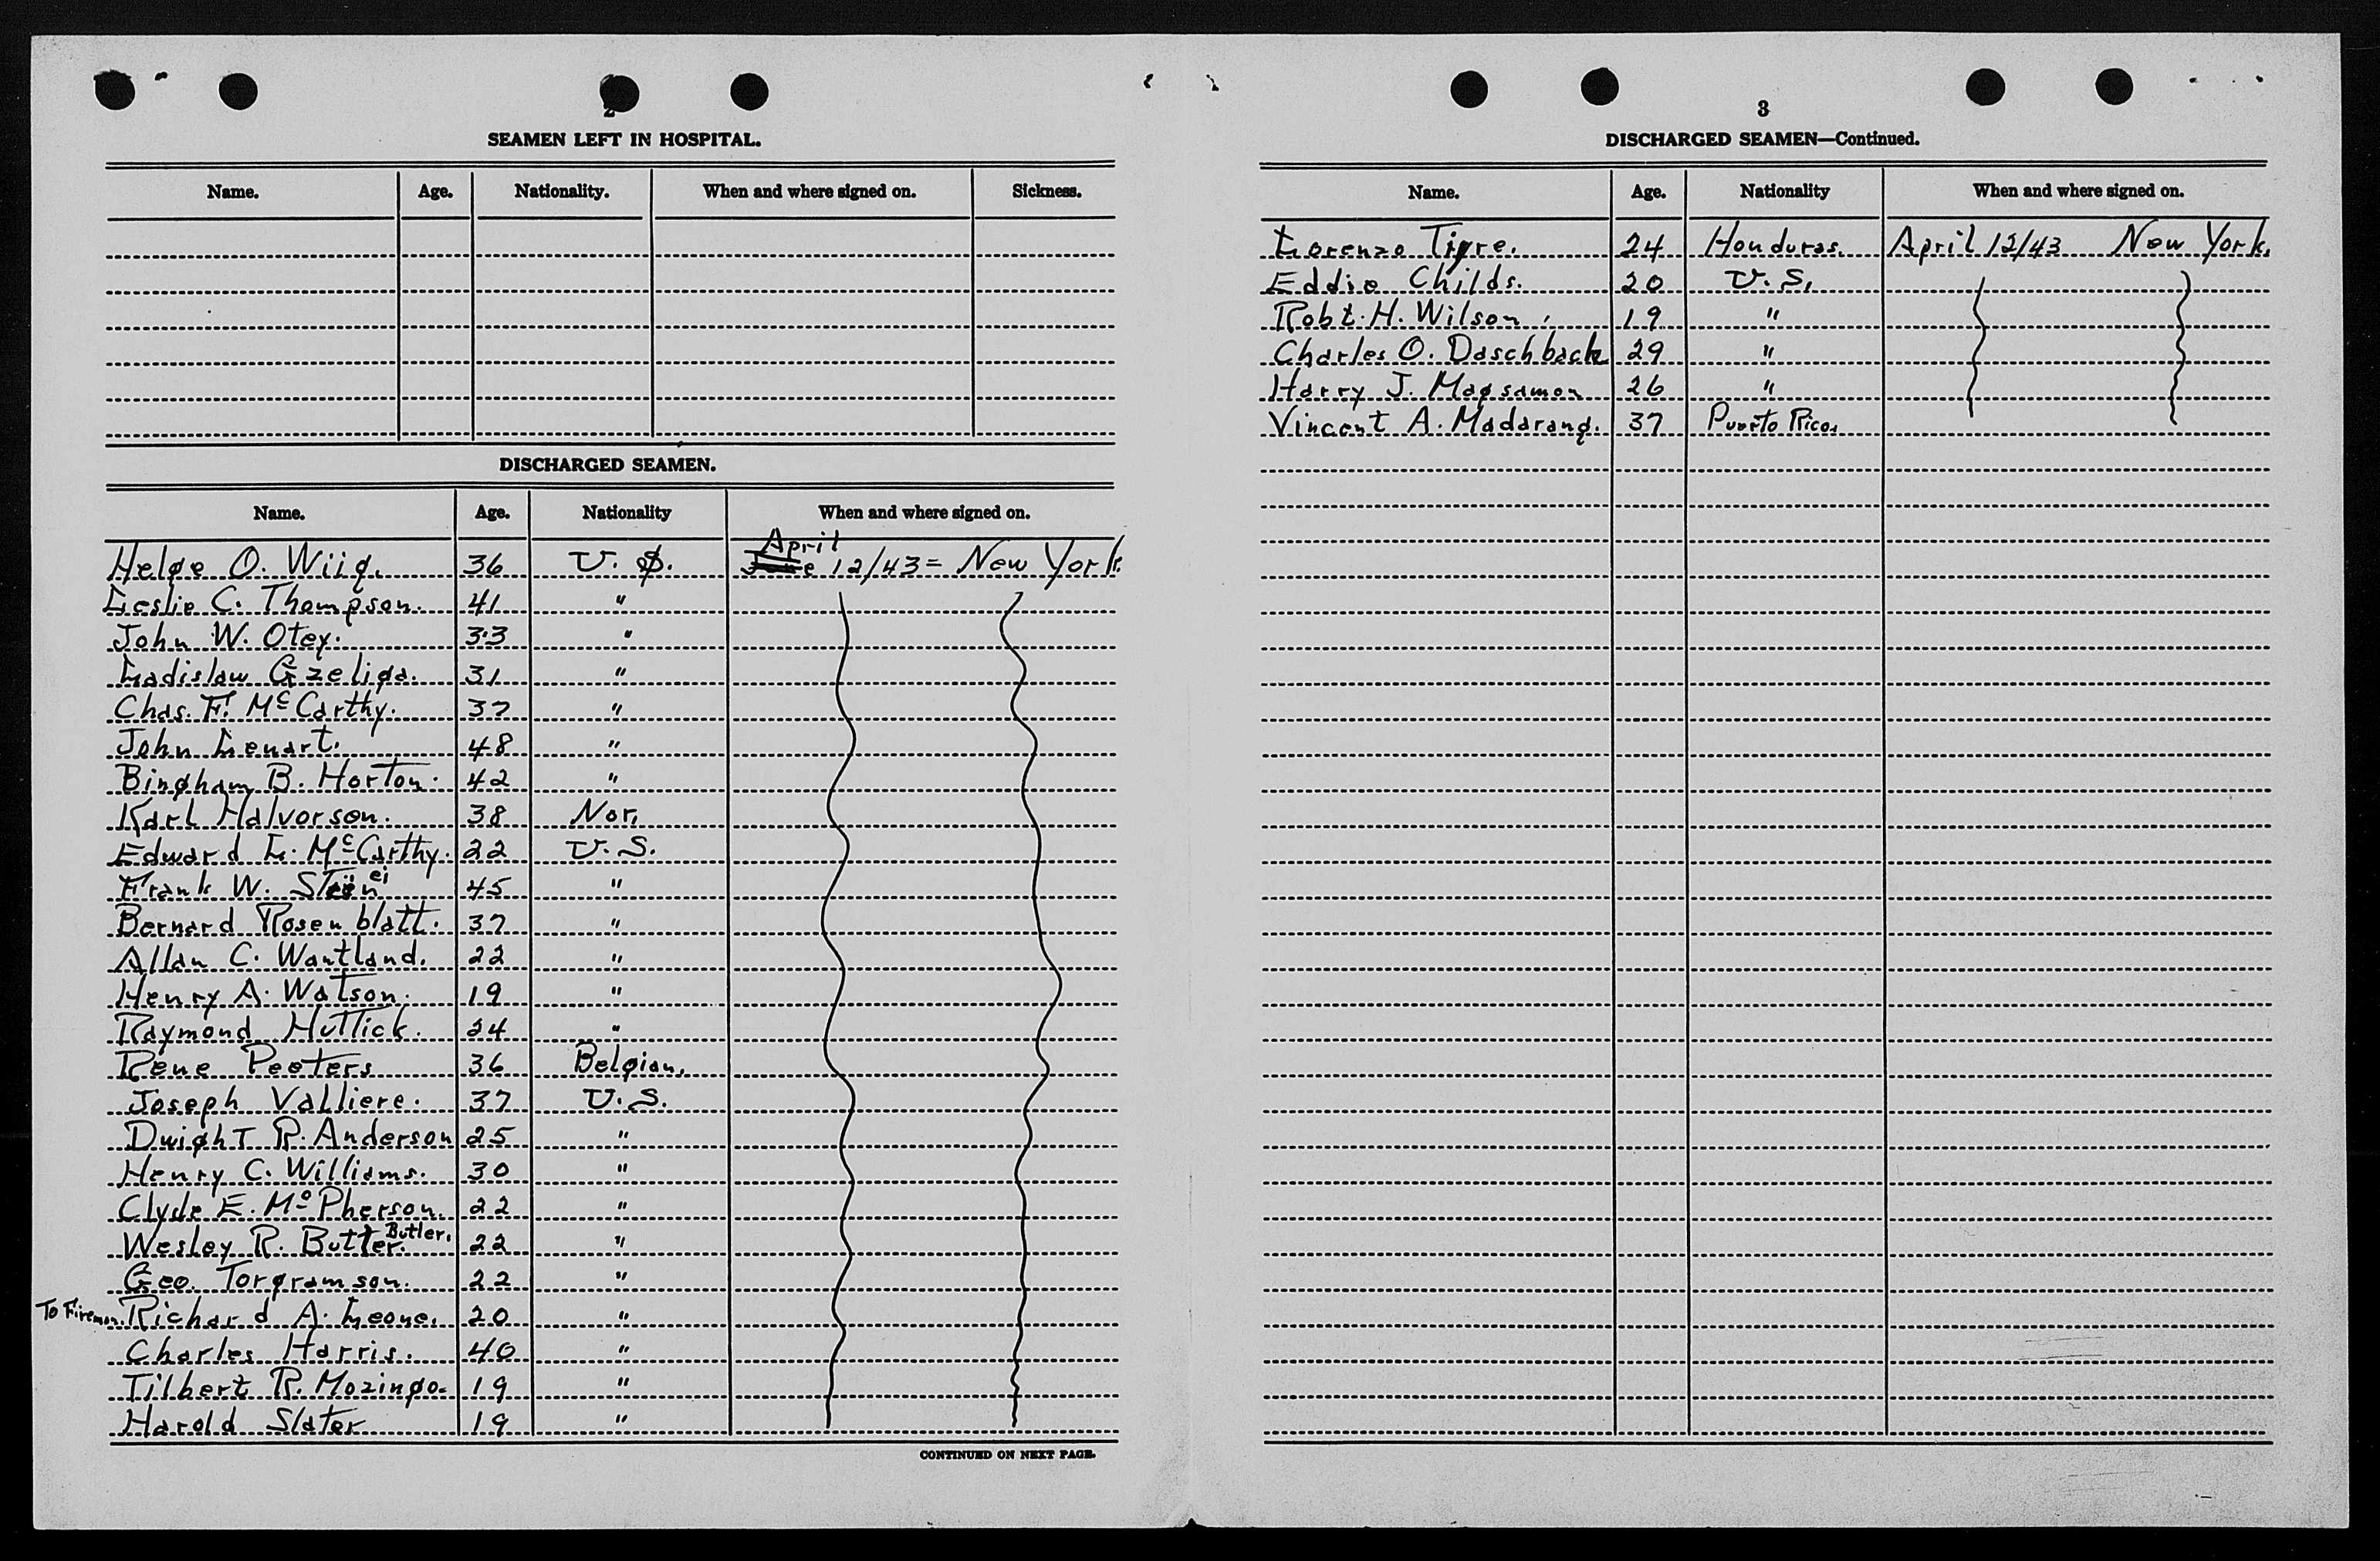 2
SEAMEN LEFT IN HOSPITAL.
Name. Age. Nationality. When and where signed on. Sickness.
DISCHARGED SEAMEN.
Name. Age. Nationality When and where signed on.
April
Helge O. Wiig. 36 U. S. June 12/43 = New York.
Leslie C. Thompson. 41 "
John W. Otey. 33 "
Ladislaw Gzeliga. 31 "
Chas. F. McCarthy. 37 "
John Lenart. 48 "
Bingham B. Horton. 42 "
Karl Halvorson. 38 Nor.
Edward L. McCarthy. 22 U. S.
Frank W. Steen ei 45 "
Bernard Rosenblatt. 37 "
Allan C. Wantland. 22 "
Henry A. Watson. 19 "
Raymond Huttick. 24 "
Rene Peeters 36 Belgian.
Joseph Valliere. 37 U. S.
Dwight R. Anderson 25 "
Henry C. Williams. 30 "
Clyde E. McPherson. 22 "
Wesley R. Butter. Butler. 22 "
Geo. Torgramson. 22 "
To Fireman. Richard A. Leone. 20 "
Charles Harris. 40 "
Tilbert R. Mozingo. 19 "
Harold Slater 19 "
CONTINUED ON NEXT PAGE.
3
DISCHARGED SEAMEN—Continued.
Name. Age. Nationality When and where signed on.
Lorenzo Tigre. 24 Honduras. April 12/43 New York.
Eddie Childs. 20 U. S.
Robt. H. Wilson. 19 "
Charles O. Daschback 29 "
Harry J. Magsamen 26 "
Vincent A. Madarang. 37 Puerto Rico.